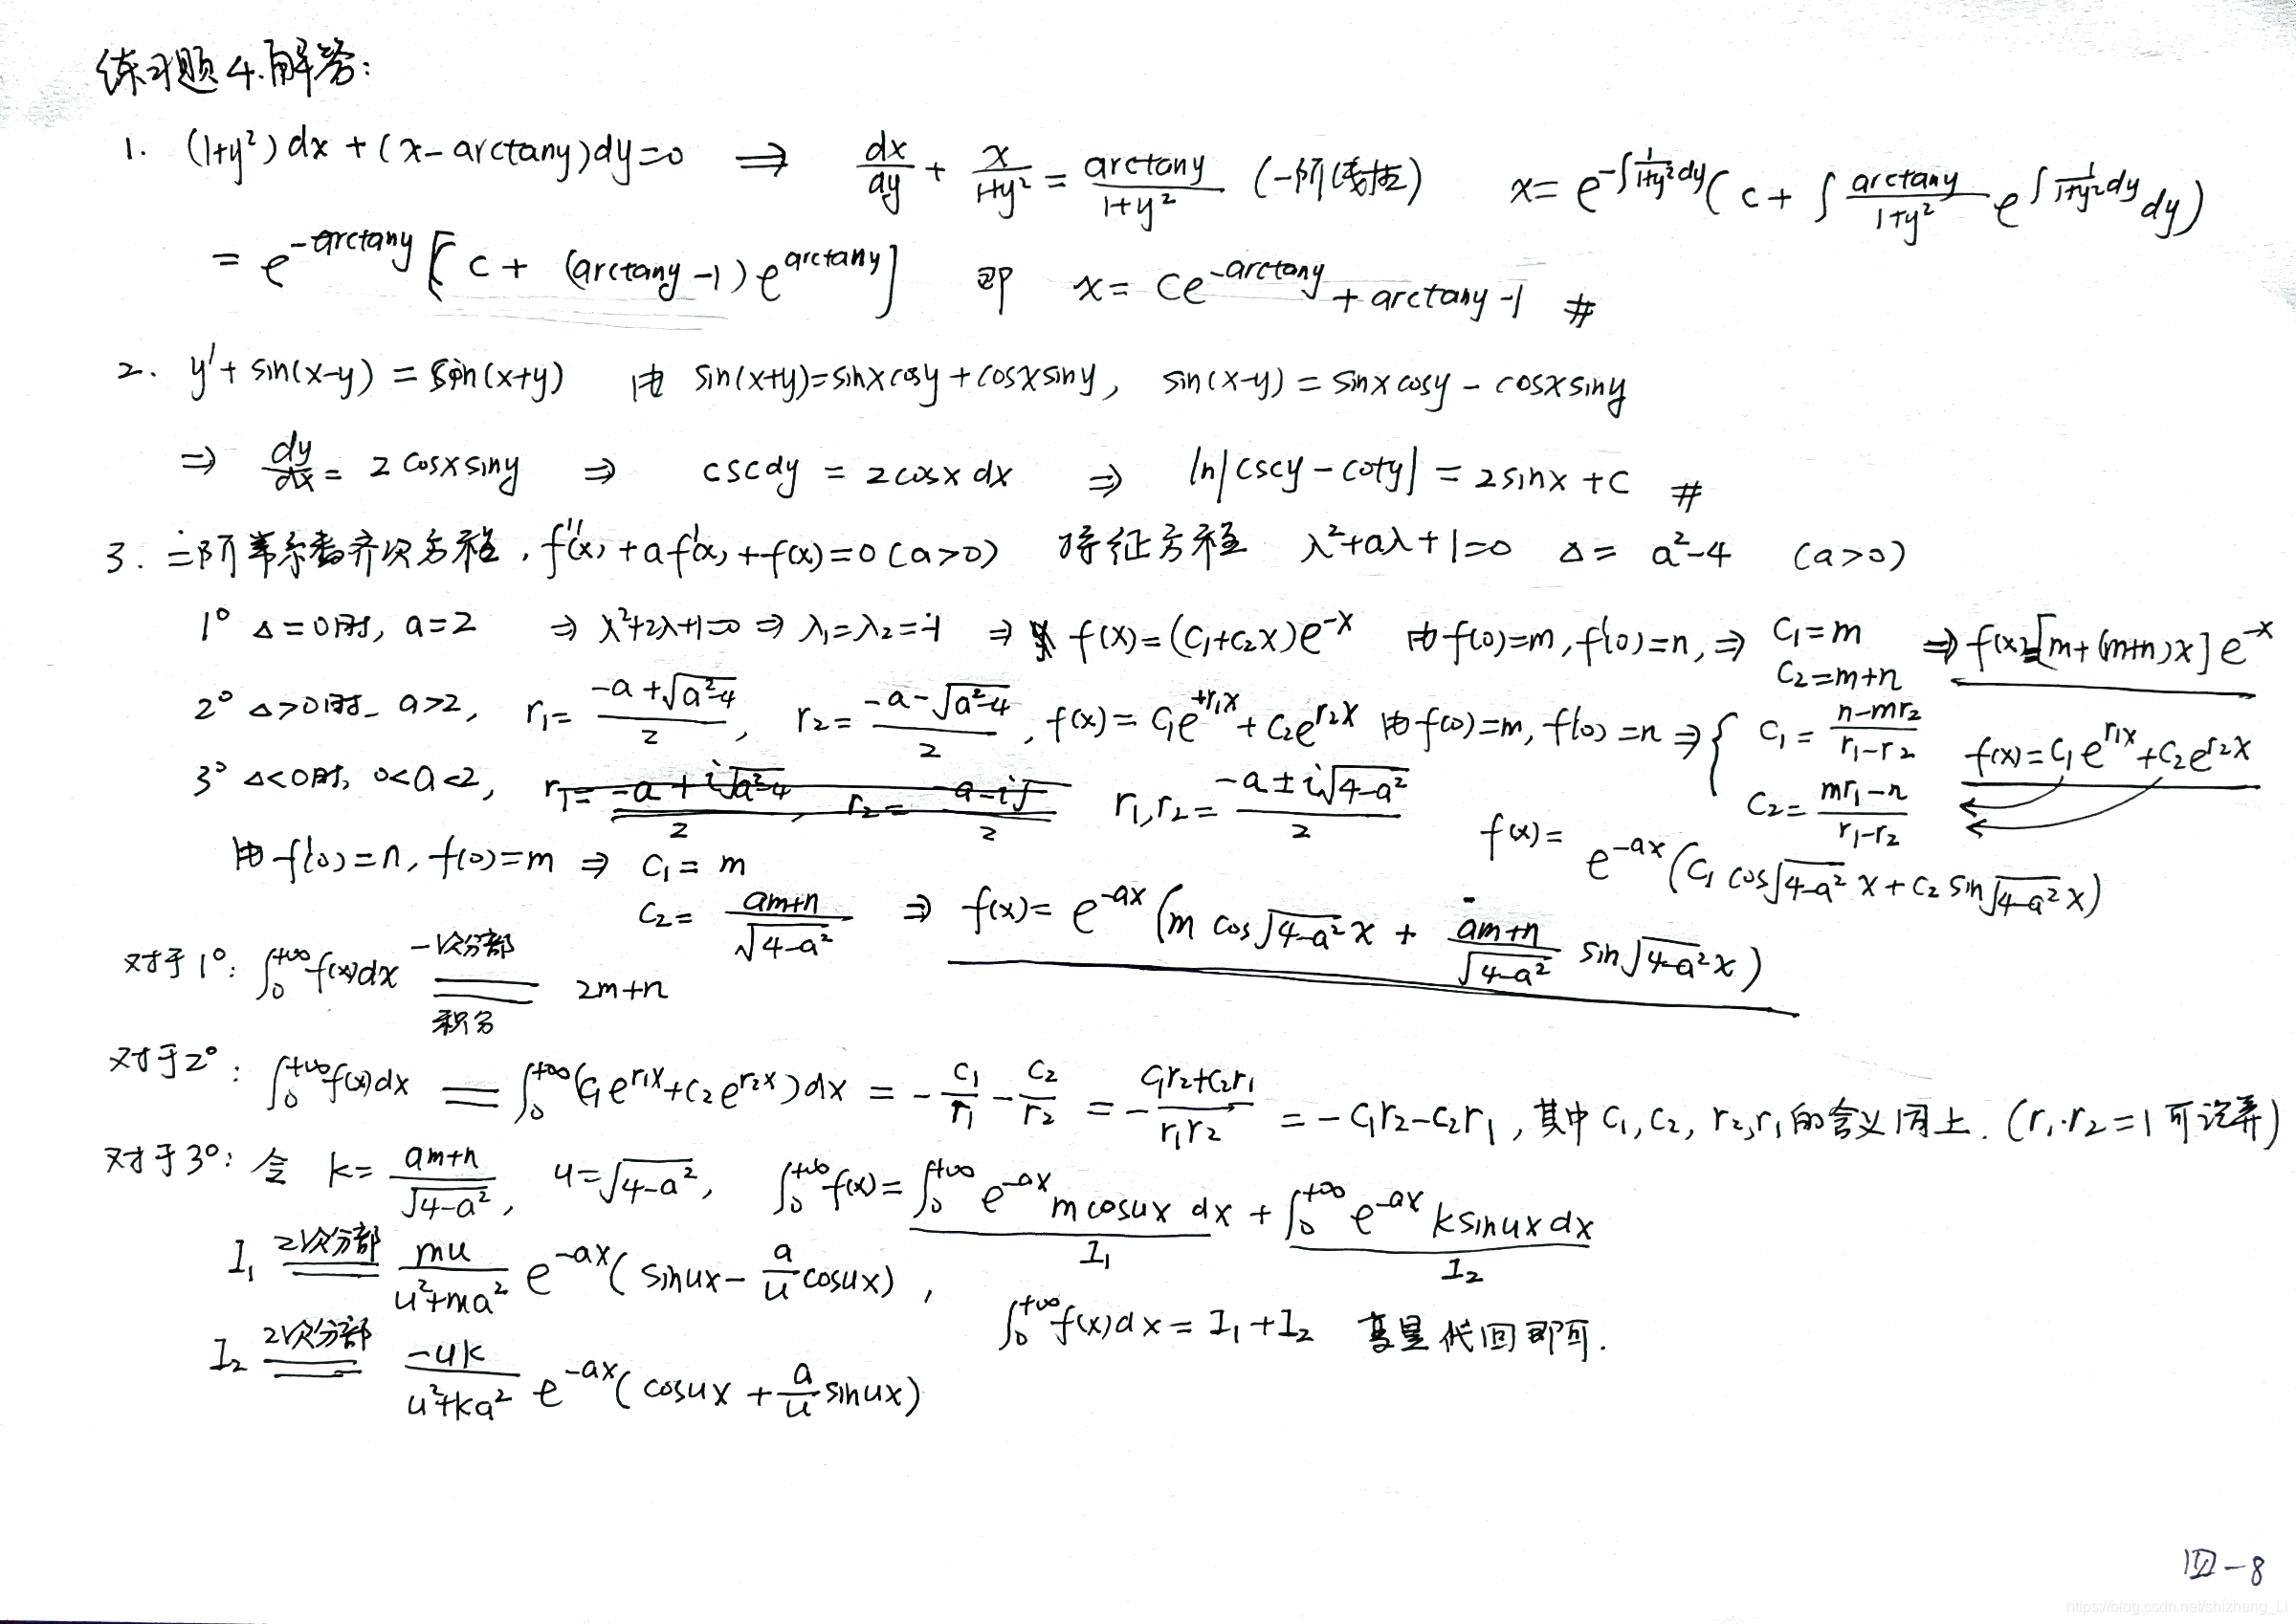 练习题4.解答:
1. (1+y²)dx+(x-arctany)dy=0 ⇒ dx/dy + x/(1+y²) = arctany/(1+y²) (一阶线性) x= e^(-∫1/(1+y²)dy)(c+∫ arctany/(1+y²) e^(∫1/(1+y²)dy) dy)
= e^(-arctany)[c+(arctany-1)e^(arctany)] 即 x= Ce^(-arctany)+arctany-1 #
2. y'+sin(x-y)=sin(x+y) 由 sin(x+y)=sinxcosy+cosxsiny, sin(x-y)=sinxcosy-cosxsiny
⇒ dy/dx = 2cosxsiny ⇒ cscdy = 2cosxdx ⇒ ln|cscy-coty|=2sinx+C #
3. 二阶常系数齐次方程, f''(x)+af'(x)+f(x)=0(a>0) 特征方程 λ²+aλ+1=0 Δ= a²-4 (a>0)
1° Δ=0时, a=2 ⇒ λ²+2λ+1=0 ⇒ λ₁=λ₂=-1 ⇒ f(x)=(C₁+C₂x)e^(-x) 由f(0)=m, f'(0)=n, ⇒ C₁=m C₂=m+n ⇒ f(x)=[m+(m+n)x]e^(-x)
2° Δ>0时 a>2, r₁= (-a+√(a²-4))/2, r₂= (-a-√(a²-4))/2, f(x)=C₁e^(r₁x)+C₂e^(r₂x) 由f(0)=m, f'(0)=n ⇒ { C₁= (n-mr₂)/(r₁-r₂) C₂= (mr₁-n)/(r₁-r₂) f(x)=C₁e^(r₁x)+C₂e^(r₂x)
3° Δ<0时, 0<a<2, r₁,r₂= (-a±i√(4-a²))/2 f(x)= e^(-ax)(C₁cos√(4-a²)x+C₂sin√(4-a²)x)
由f'(0)=n, f(0)=m ⇒ C₁=m
C₂= (am+n)/√(4-a²) ⇒ f(x)= e^(-ax)(m cos√(4-a²)x + (am+n)/√(4-a²) sin√(4-a²)x)
对于1°: ∫₀^(+∞)f(x)dx =(一次分部积分)= 2m+n
对于2°: ∫₀^(+∞)f(x)dx = ∫₀^(+∞)(C₁e^(r₁x)+C₂e^(r₂x))dx = -C₁/r₁ - C₂/r₂ = -(C₁r₂+C₂r₁)/(r₁r₂) = -C₁r₂-C₂r₁, 其中C₁,C₂,r₂,r₁的含义同上. (r₁·r₂=1可记弃)
对于3°: 令 k= (am+n)/√(4-a²), u=√(4-a²), ∫₀^(+∞)f(x)= ∫₀^(+∞)e^(-ax)mcosux dx + ∫₀^(+∞)e^(-ax)ksinuxdx
I₁ I₂
I₁ =(2次分部)= mu/(u²+ma²) e^(-ax)(sinux- a/u cosux),
∫₀^(+∞)f(x)dx = I₁+I₂ 变量代回即可.
I₂ =(2次分部)= -uk/(u²+ka²) e^(-ax)(cosux+ a/u sinux)
四-8
https://blog.csdn.net/shizheng_Li